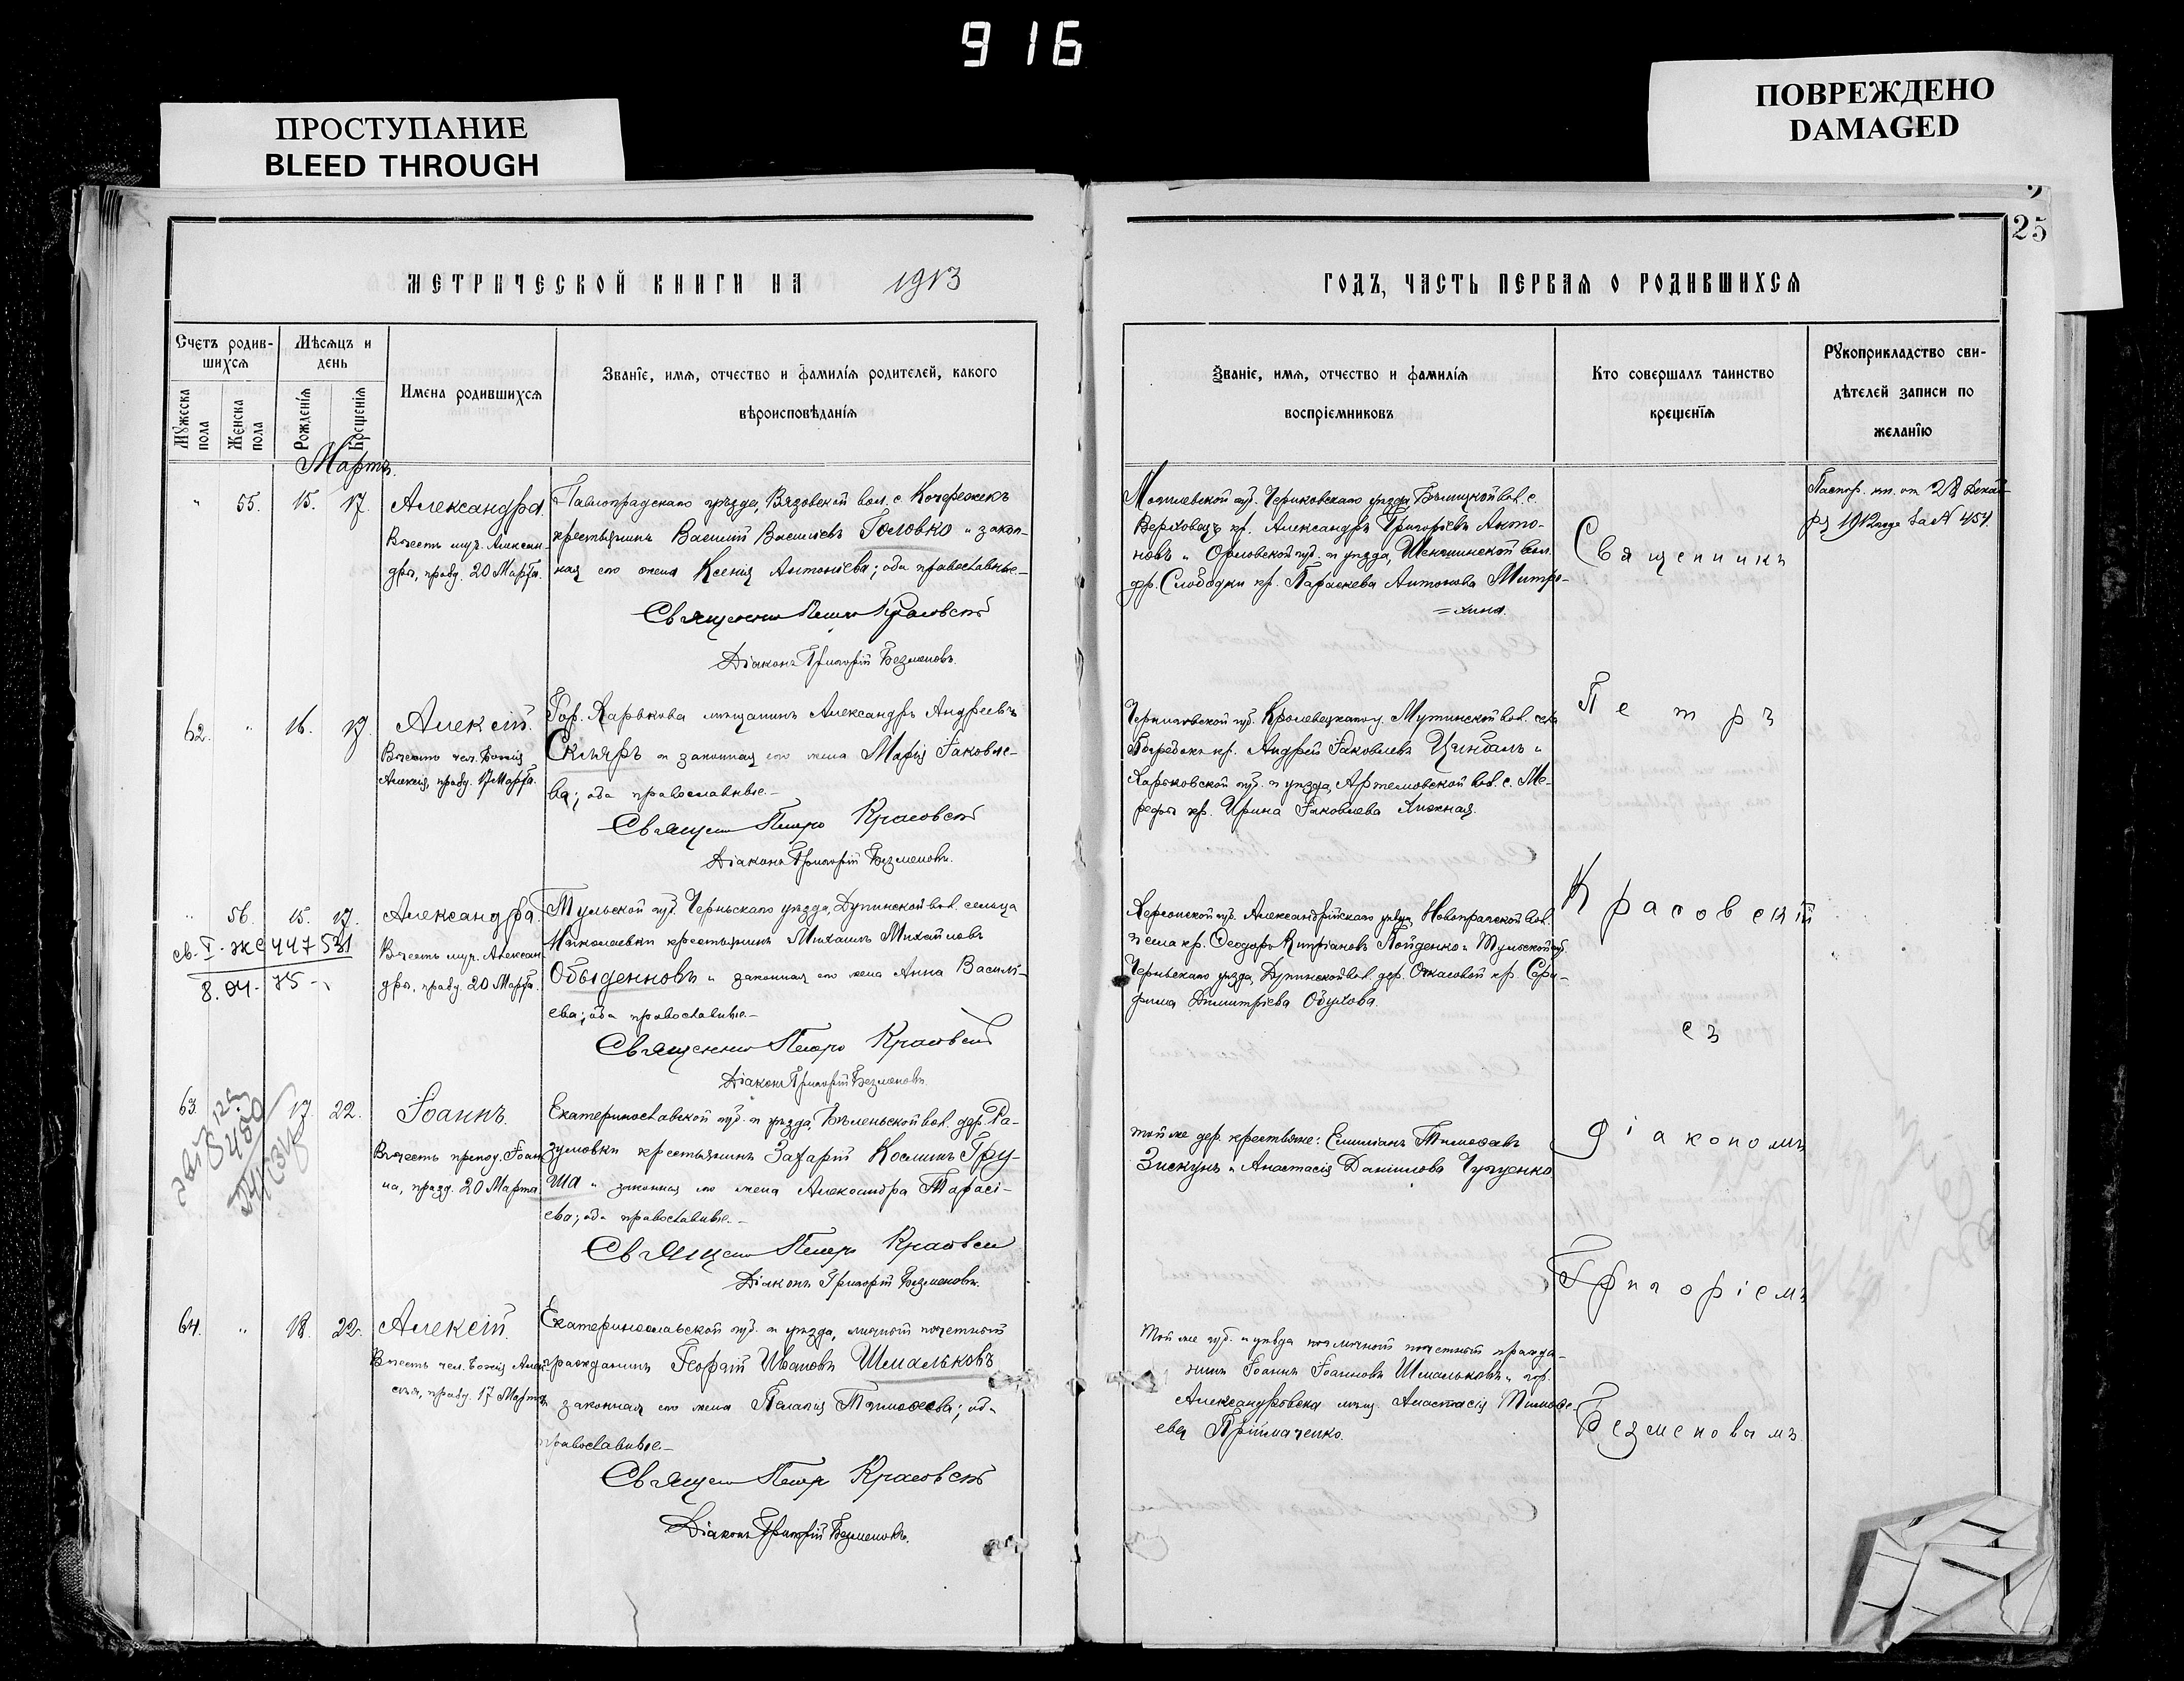 916
ПРОСТУПАНИЕ
BLEED THROUGH
ПОВРЕЖДЕНО
DAMAGED
25
МЕТРИЧЕСКОЙ КНИГИ НА 1913
Счетъ родив-
шихся
Мѣсяцъ и
день
Мужеска
пола
Женска
пола
Рожденїя
Крещенїя
Имена родившихся
Званїе, имя, отчество и фамилїя родителей, какого
вѣроисповѣданїя
Мартъ.
" 55. 15. 17. Александра.
Въ честь муч. Алексан-
дры, празд. 20 Марта.
Павлоградскаго уѣзда, Вязовской вол. с. Кочережекъ
крестьянинъ Василій Васильевъ Головко и закон-
ная его жена Ксенія Антоніева; оба православные.
Священникъ Петръ Красовскій
Діаконъ Григорій Безменовъ.
62. " 16. 17. Алексій.
Въ честь чел. Божія
Алексія, празд. 17 Марта.
Гор. Харькова мѣщанинъ Александръ Андреевъ
Скляръ и законная его жена Марія Іаковле-
ва; оба православные.
Священ Петръ Красовскій
Діаконъ Григорій Безменовъ.
" 56. 15. 17. Александра.
Въ честь муч. Алексан-
дры, празд. 20 Марта.
св. I-ЖС 447531
8.04-75
Тульской губ. Чернскаго уѣзда, Дупинской вол. сельца
Николаевки крестьянинъ Михаилъ Михайловъ
Обыденновъ и законная его жена Анна Василі-
ева; оба православные.
Священник Петръ Красовскій
Діаконъ Григорій Безменовъ.
63. 17. 22. Іоаннъ.
Въ честь препод. Іоан-
на, празд. 20 Марта
Екатеринославской губ. и уѣзда, Бѣленьской вол. дер. Ра-
зумовки крестьянинъ Захарій Косминъ Гру-
ша и законная его жена Александра Тарасі-
ева; оба православные.
Священ Петръ Красовскій
Діаконъ Григорій Безменовъ.
64. " 18. 22. Алексій.
Въ честь чел. Божія Алек-
сія, празд. 17 Марта
Екатеринославской губ. и уѣзда, личный почетный
гражданинъ Георгій Ивановъ Шмальковъ
и законная его жена Пелагія Тимофеева; оба
православные.
Священ Петръ Красовскій
Діаконъ Григорій Безменовъ.
ГОДЪ, ЧАСТЬ ПЕРВАЯ О РОДИВШИХСЯ
Званїе, имя, отчество и фамилїя
воспрїемниковъ
Кто совершалъ таинство
крещенїя
Рукоприкладство сви-
дѣтелей записи по
желанїю
Могилевской губ. Чериковскаго уѣзда вол. с.
кр. Александръ Григорьевъ Анто-
новъ и Орловской губ. и уѣзда, вол.
дер. Слободки кр. Параскева Антонова Митро-
хина.
Черниговской губ. Кролевецкаго у. Мутинской вол. села
кр. Андрей Іаковлевъ и
Харьковской губ. и уѣзда, Артемовской вол. с. Ме-
рефы кр. Ирина Іаковлева
Херсонской губ. Александрійскаго уѣзда, Новопражской вол.
и села кр. Феодоръ Кипріановъ и Тульской губ.
Чернскаго уѣзда, Дупинской вол. дер. кр. Сера-
фима Димитріева Обухова.
той же дер. крестьяне: Емиліанъ Тимофеевъ
Зискунъ и Анастасія Даниилова
Той же губ. и уѣзда личный почетный гражда-
нинъ Іоаннъ Іоанновъ Шмальковъ и гор.
Александровска мѣщ. Анастасія Тимофе-
ева Пріймаченко.
Священникъ
Петръ
Красовскій
съ
діакономъ
Григоріемъ
Безменовымъ.
Паспор. кн. от 28 Декаб-
ря 1912 года за № 454